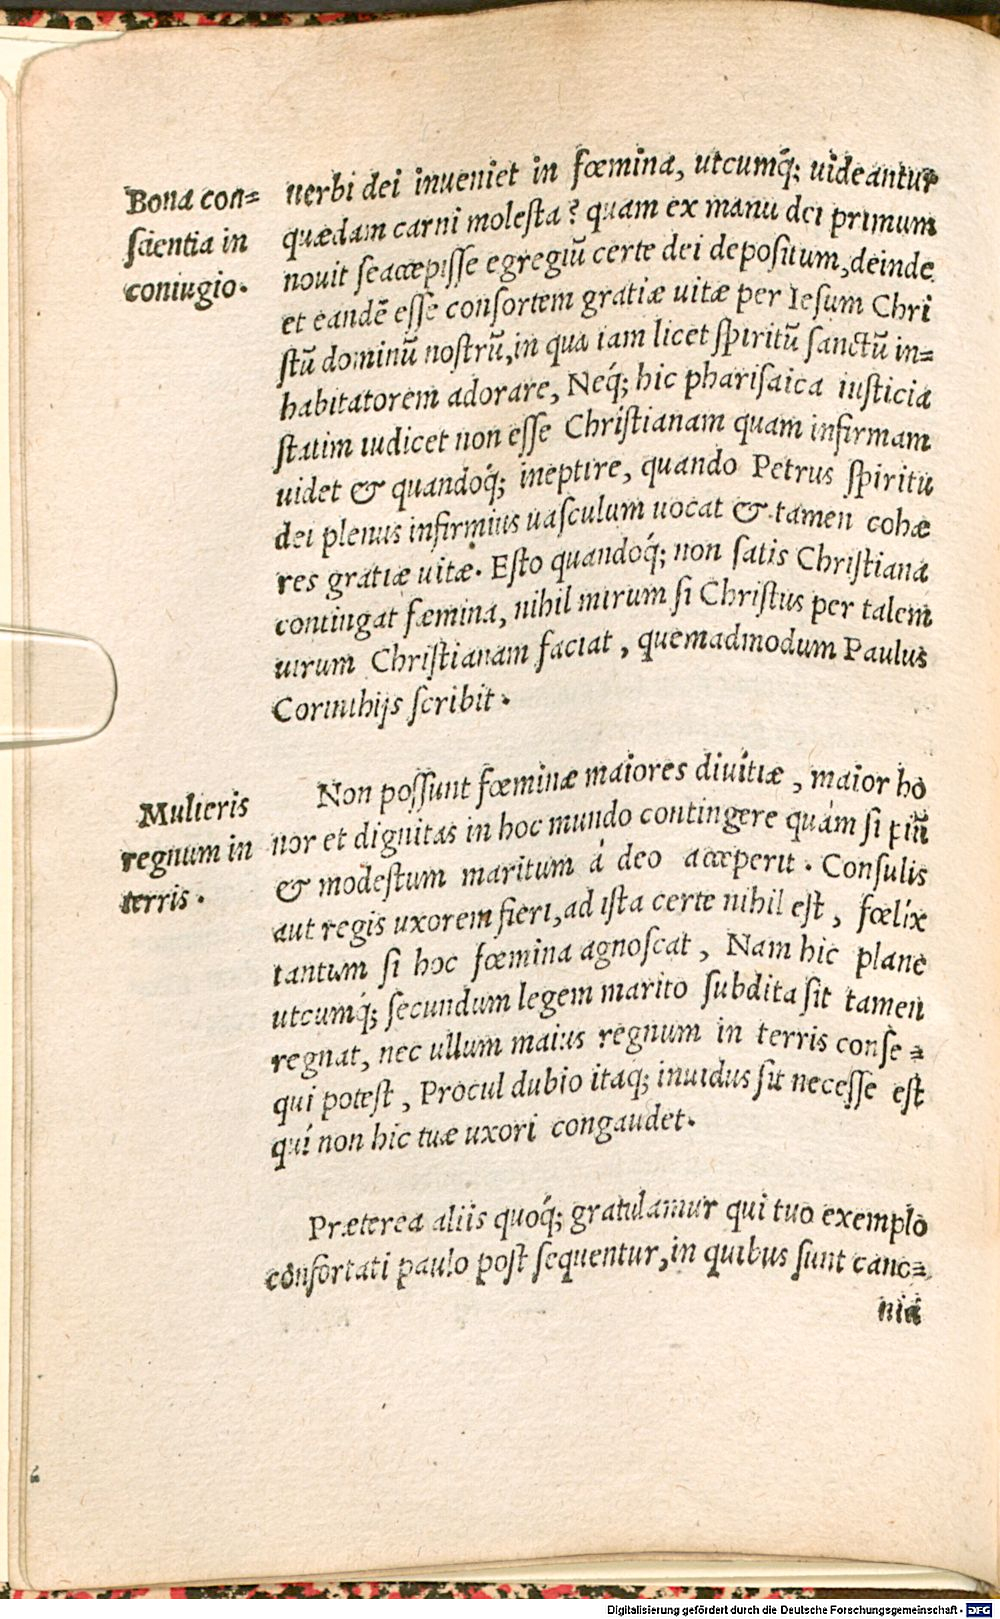 Bona con=
scientia in
coniugio.
uerbi dei inueniet in fœmina, utcumq́; uideantur
quædam carni molesta? quam ex manu dei primum
nouit se accepisse egregiū certe dei depositum, deinde
et eandē esse consortem gratiæ uitæ per Iesum Chri
stū dominū nostrū, in qua iam licet spiritū sanctū in=
habitatorem adorare, Neq́; hic pharisaica iusticia
statim iudicet non esse Christianam quam infirmam
uidet & quandoq́; ineptire, quando Petrus spiritu
dei plenus infirmius uasculum uocat & tamen cohæ
res gratiæ uitæ. Esto quandoq́; non satis Christiana
contingat fæmina, nihil mirum si Christus per talem
uirum Christianam faciat, quemadmodum Paulus
Corinthijs scribit.
Mulieris
regnum in
terris.
Non possunt fœminæ maiores diuitiæ, maior ho
nor et dignitas in hoc mundo contingere quám si piū
& modestum maritum á deo acceperit. Consulis
aut regis uxorem fieri, ad ista certe nihil est, fœlix
tantum si hoc fœmina agnoscat, Nam hic plane
utcumq́; secundum legem marito subdita sit tamen
regnat, nec ullum maius regnum in terris conse=
qui potest, Procul dubio itaq; inuidus sit necesse est
qui non hic tuæ uxori congaudet.
Præterea aliis quoq́; gratulamur qui tuo exemplo
confortati paulo post sequentur, in quibus sunt cano=
nici
Digitalisierung gefördert durch die Deutsche Forschungsgemeinschaft - DFG